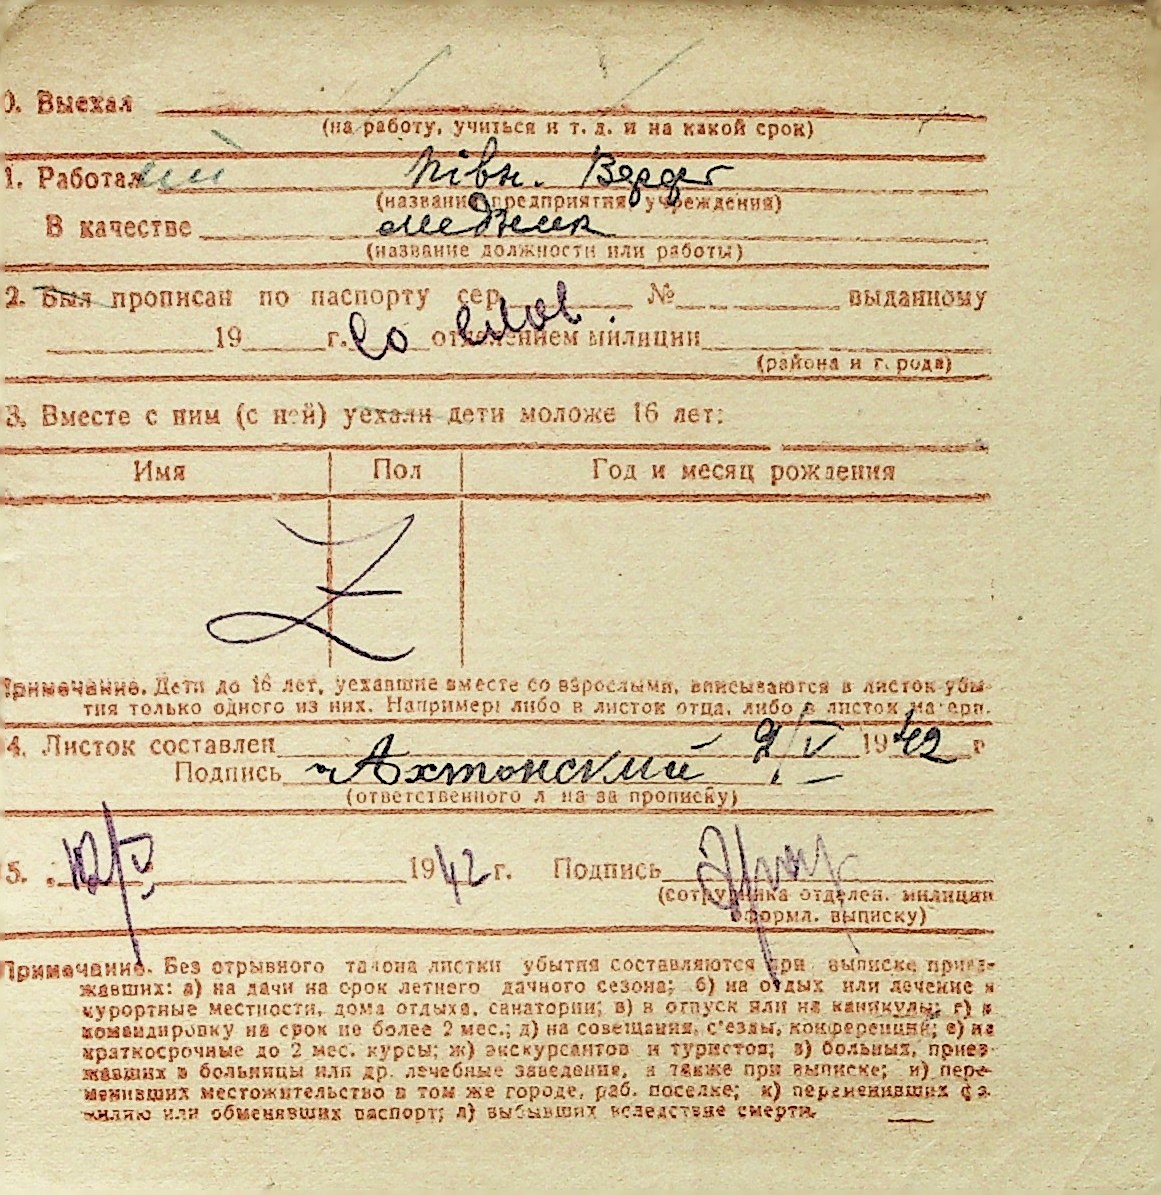 0. Выехал
(на работу, учиться и т. д. и на какой срок)
1. Работал
(название предприятия, учреждения)
В качестве медник
(название должности или работы)
2. Был прописан по паспорту сер. № выданному
19 г. Со слов. отделением милиции
(района и города)
3. Вместе с ним (с ней) уехали дети моложе 16 лет:
Имя Пол Год и месяц рождения
Z
Примечание. Дети до 16 лет, уехавшие вместе со взрослыми, вписываются в листок убы-
тия только одного из них. Например: либо в листок отца, либо в листок матери.
4. Листок составлен 9/V 1942 г
Подпись Ахтонский
(ответственного лица за прописку)
5. 12/V 1942 г. Подпись
(сотрудника отделен. милиции
оформл. выписку)
Примечание. Без отрывного талона листки убытия составляются при выписке приез-
жавших: а) на дачи на срок летнего дачного сезона; б) на отдых или лечение в
курортные местности, дома отдыха, санатории; в) в отпуск или на каникулы; г) в
командировку на срок не более 2 мес.; д) на совещания, с'езды, конференции; е) на
краткосрочные до 2 мес. курсы; ж) экскурсантов и туристов; з) больных, приез-
жавших в больницы или др. лечебные заведения, а также при выписке; и) пере-
менивших местожительство в том же городе, раб. поселке; к) переменивших фа-
милию или обменявших паспорт; л) выбывших вследствие смерти.